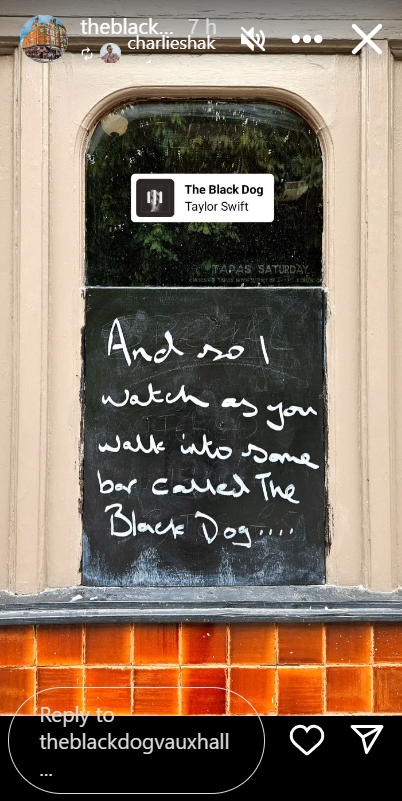 theblack... 7 h
charlieshak
The Black Dog
Taylor Swift
TAPAS SATURDAY
And so I
watch as you
walk into some
bar called The
Black Dog....
Reply to
theblackdogvauxhall
...